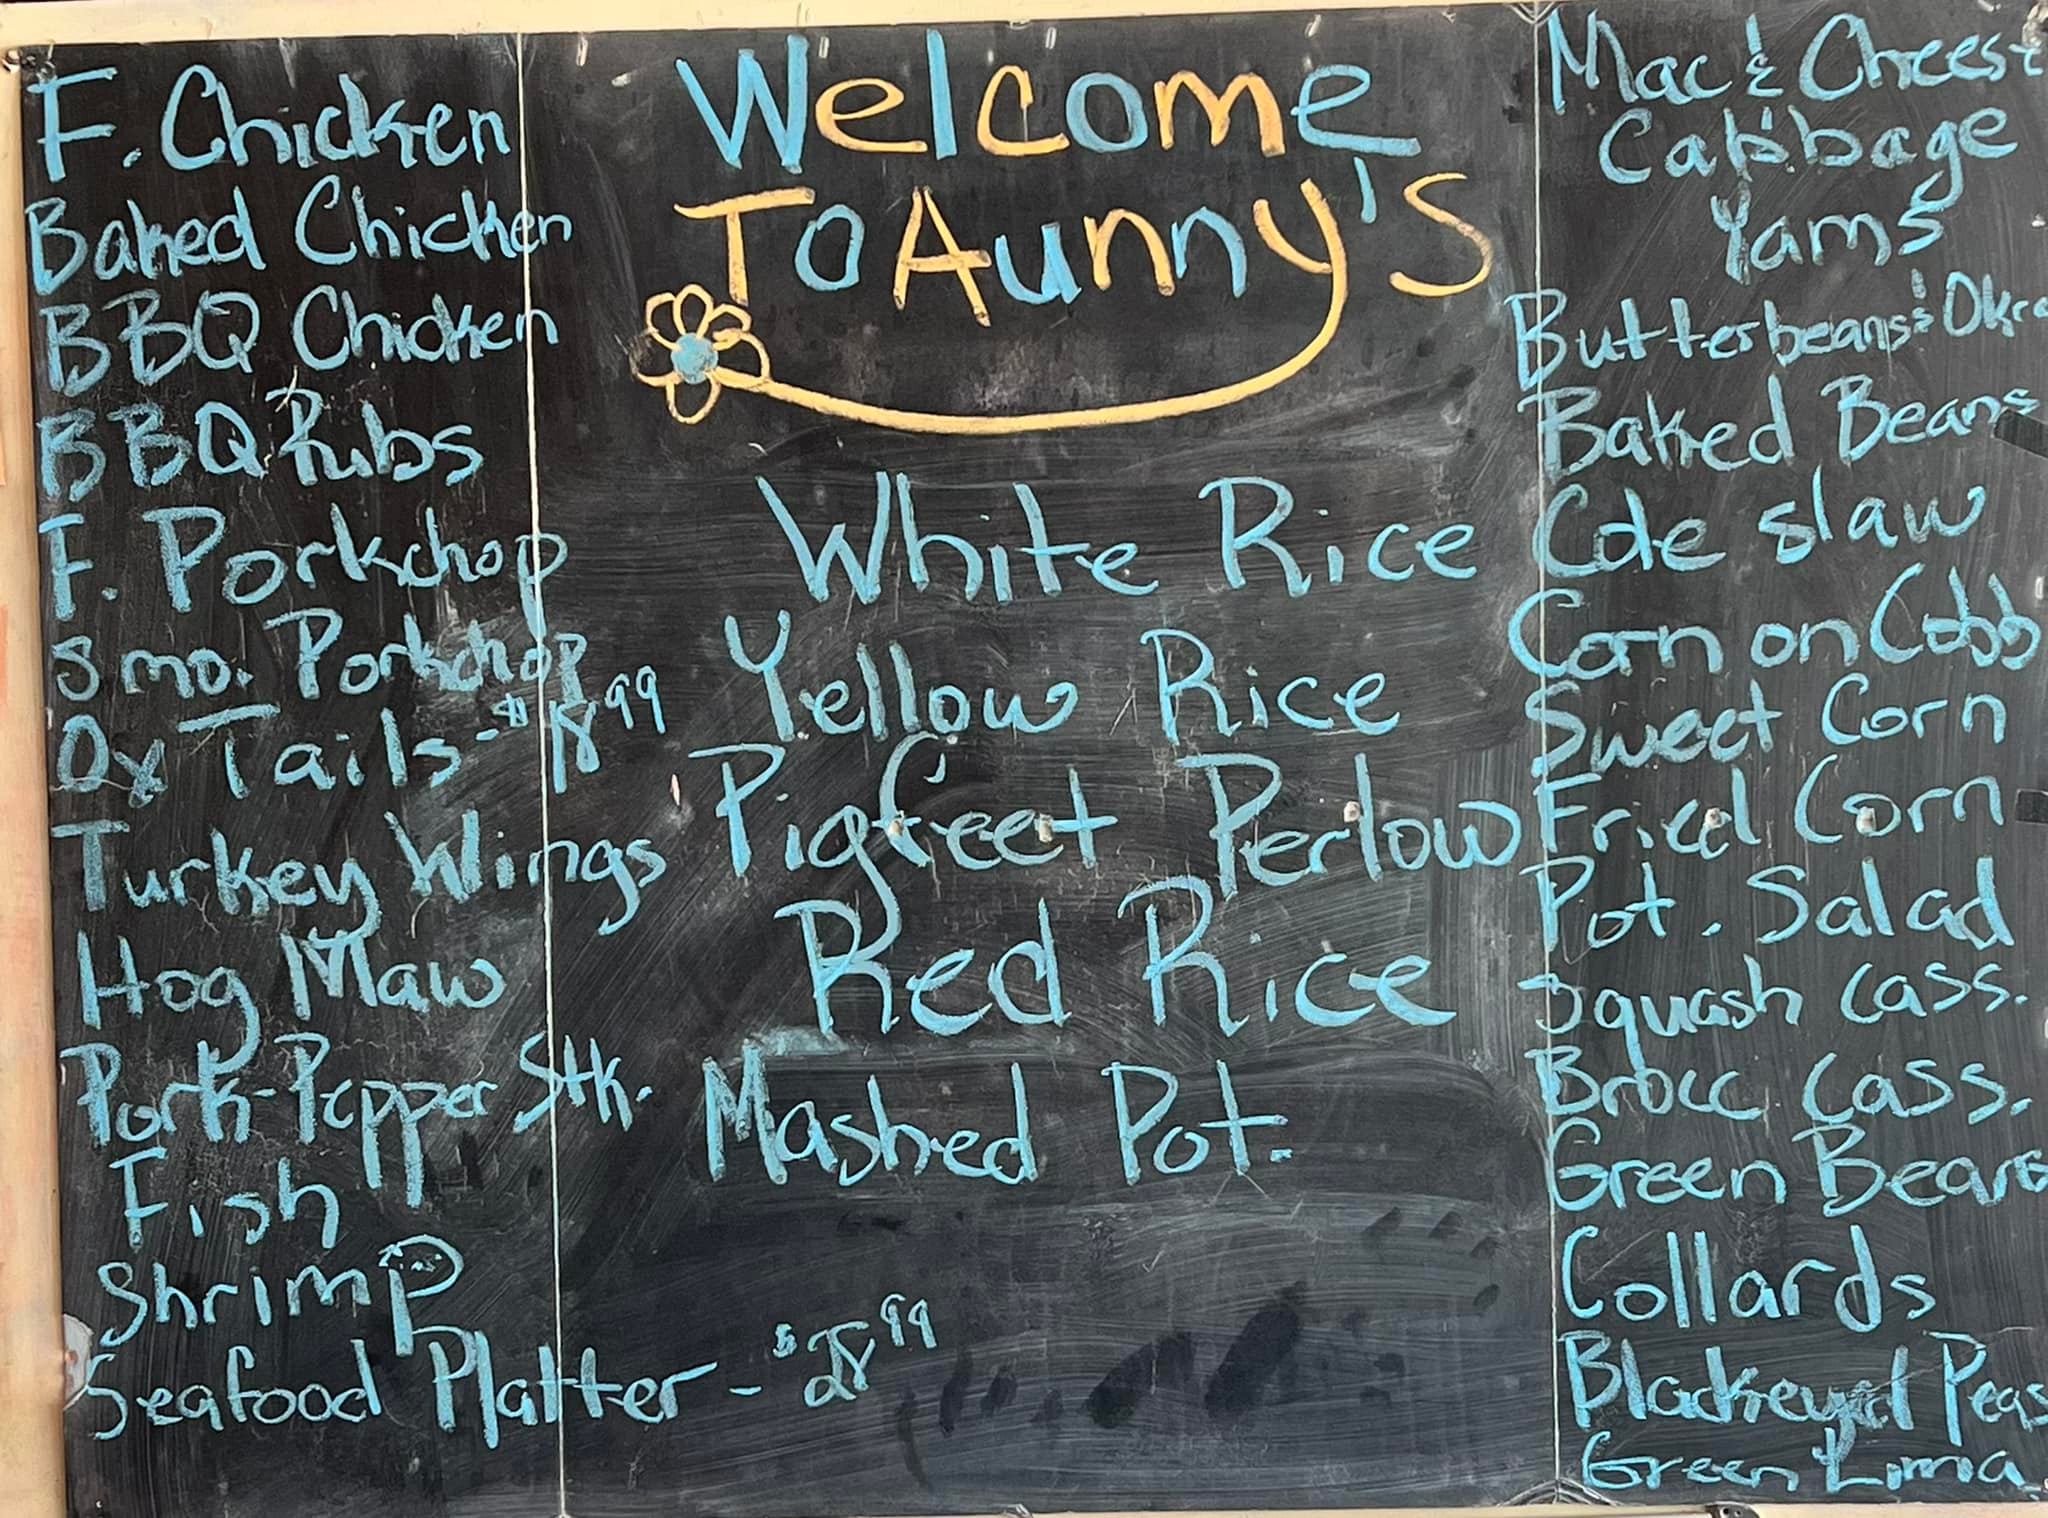 Welcome
To Aunny's
F. Chicken
Baked Chicken
BBQ Chicken
BBQ Rubs
F. Porkchop
Smo. Porkchop
Ox Tails - $18.99
Turkey Wings
Hog Maw
Pork-Pepper Stk.
Fish
Shrimp
Seafood Platter - $28.99
White Rice
Yellow Rice
Pigfeet Perlow
Red Rice
Mashed Pot.
Mac & Cheese
Cabbage
Yams
Butterbeans & Okra
Baked Beans
Cole slaw
Corn on Cobb
Sweet Corn
Fried Corn
Pot. Salad
Squash Cass.
Brocc. Cass.
Green Beans
Collards
Blackeyed Peas
Green Lima